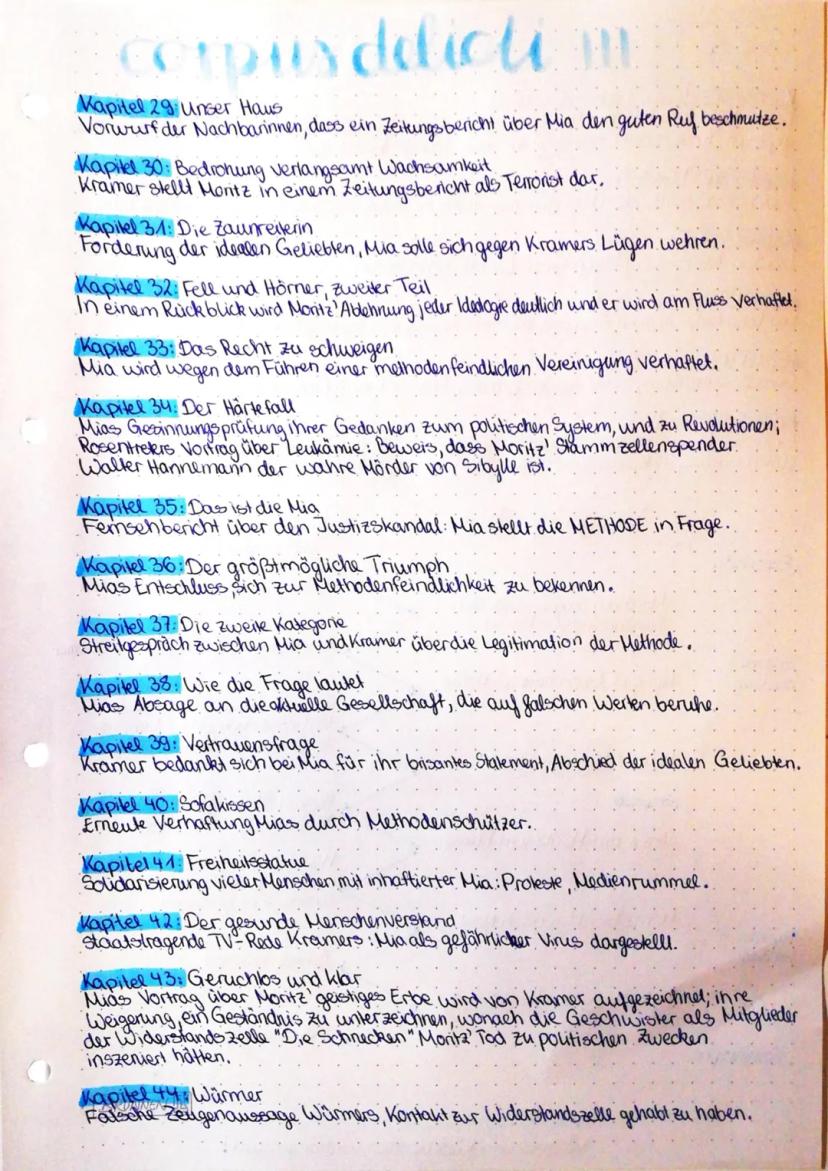 corpus delicti III
Kapitel 29: Unser Haus
Vorwurf der Nachbarinnen, dass ein Zeitungsbericht über Mia den guten Ruf beschmutze.
Kapitel 30: Bedrohung verlangsamt Wachsamkeit
Kramer stellt Moritz in einem Zeitungsbericht als Terrorist dar.
Kapitel 31: Die Zaunreiterin
Forderung der idealen Geliebten, Mia solle sich gegen Kramers Lügen wehren.
Kapitel 32: Fell und Hörner, zweiter Teil
In einem Rückblick wird Moritz' Ablehnung jeder Ideologie deutlich und er wird am Fluss verhaftet.
Kapitel 33: Das Recht zu schweigen
Mia wird wegen dem Führen einer methodenfeindlichen Vereinigung verhaftet.
Kapitel 34: Der Härtefall
Mias Gesinnungsprüfung ihrer Gedanken zum politischen System, und zu Revolutionen;
Rosentreters Vortrag über Leukämie: Beweis, dass Moritz' Stammzellenspender
Walter Hannemann der wahre Mörder von Sibylle ist.
Kapitel 35: Das ist die Mia
Fernsehbericht über den Justizskandal: Mia stellt die METHODE in Frage.
Kapitel 36: Der größtmögliche Triumph
Mias Entschluss, sich zur Methodenfeindlichkeit zu bekennen.
Kapitel 37: Die zweite Kategorie
Streitgespräch zwischen Mia und Kramer über die Legitimation der Methode.
Kapitel 38: Wie die Frage lautet
Mias Absage an die aktuelle Gesellschaft, die auf falschen Werten beruhe.
Kapitel 39: Vertrauensfrage
Kramer bedankt sich bei Mia für ihr brisantes Statement, Abschied der idealen Geliebten.
Kapitel 40: Sofakissen
Erneute Verhaftung Mias durch Methodenschützer.
Kapitel 41: Freiheitsstatue
Solidarisierung vieler Menschen mit inhaftierter Mia: Proteste, Medienrummel.
Kapitel 42: Der gesunde Menschenverstand
Staatstragende TV-Rede Kramers: Mia als gefährlicher Virus dargestellt.
Kapitel 43: Geruchlos und klar
Mias Vortrag über Moritz' geistiges Erbe wird von Kramer aufgezeichnet; ihre
Weigerung, ein Geständnis zu unterzeichnen, wonach die Geschwister als Mitglieder
der Widerstandszelle "Die Schnecken" Moritz' Tod zu politischen Zwecken
inszeniert hätten.
Kapitel 44: Würmer
Falsche Zeugenaussage Würmers, Kontakt zur Widerstandszelle gehabt zu haben.